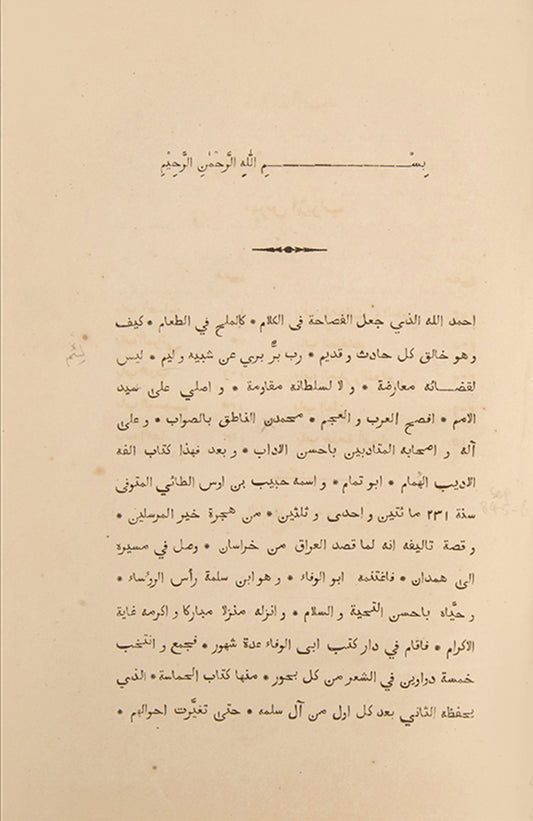 بِسْـــــــــــمِ اللهِ الرَّحْمٰنِ الرَّحِيْمِ
احمد الله الذي جعل الفصاحة فى الكلام * كالملح في الطعام * كيف
وهو خالق كل حادث وقديم * رب برٌّ بري عن شبيه وليم * ليس
لقضـــائه معارضة * ولا لسلطانه مقاومة * واصلي على سيد
الامم * افصح العرب والعجم * محمدن الناطق بالصواب * وعلى
آله واصحابه المتادبين باحسن الاداب * وبعد فهذا كتاب الفه
الاديب الهُمام * ابو تمام * واسمه حبيب بن اوس الطائي المتوفى
سنة ٢٣١ مائتين واحدى وثلثين * من هجرة خير المرسلين *
وقصة تاليفه انه لما قصد العراق من خراسان * وصل في مسيره
الى همدان * فاغتنمه ابو الوفاء * وهو ابن سلمة رأس الروُساء *
وحيَّاه باحسن التحية والسلام * وانزله منزلا مباركا واكرمه غاية
الاكرام * فاقام في دار كتب ابى الوفاء عدة شهور * فجمع وانتخب
خمسة دواوين في الشعر من كل بحور * منها كتاب الحماسة * الذي
يحفظه الثاني بعد كل اول من آل سلمه * حتى تغيَّرت احوالهم *